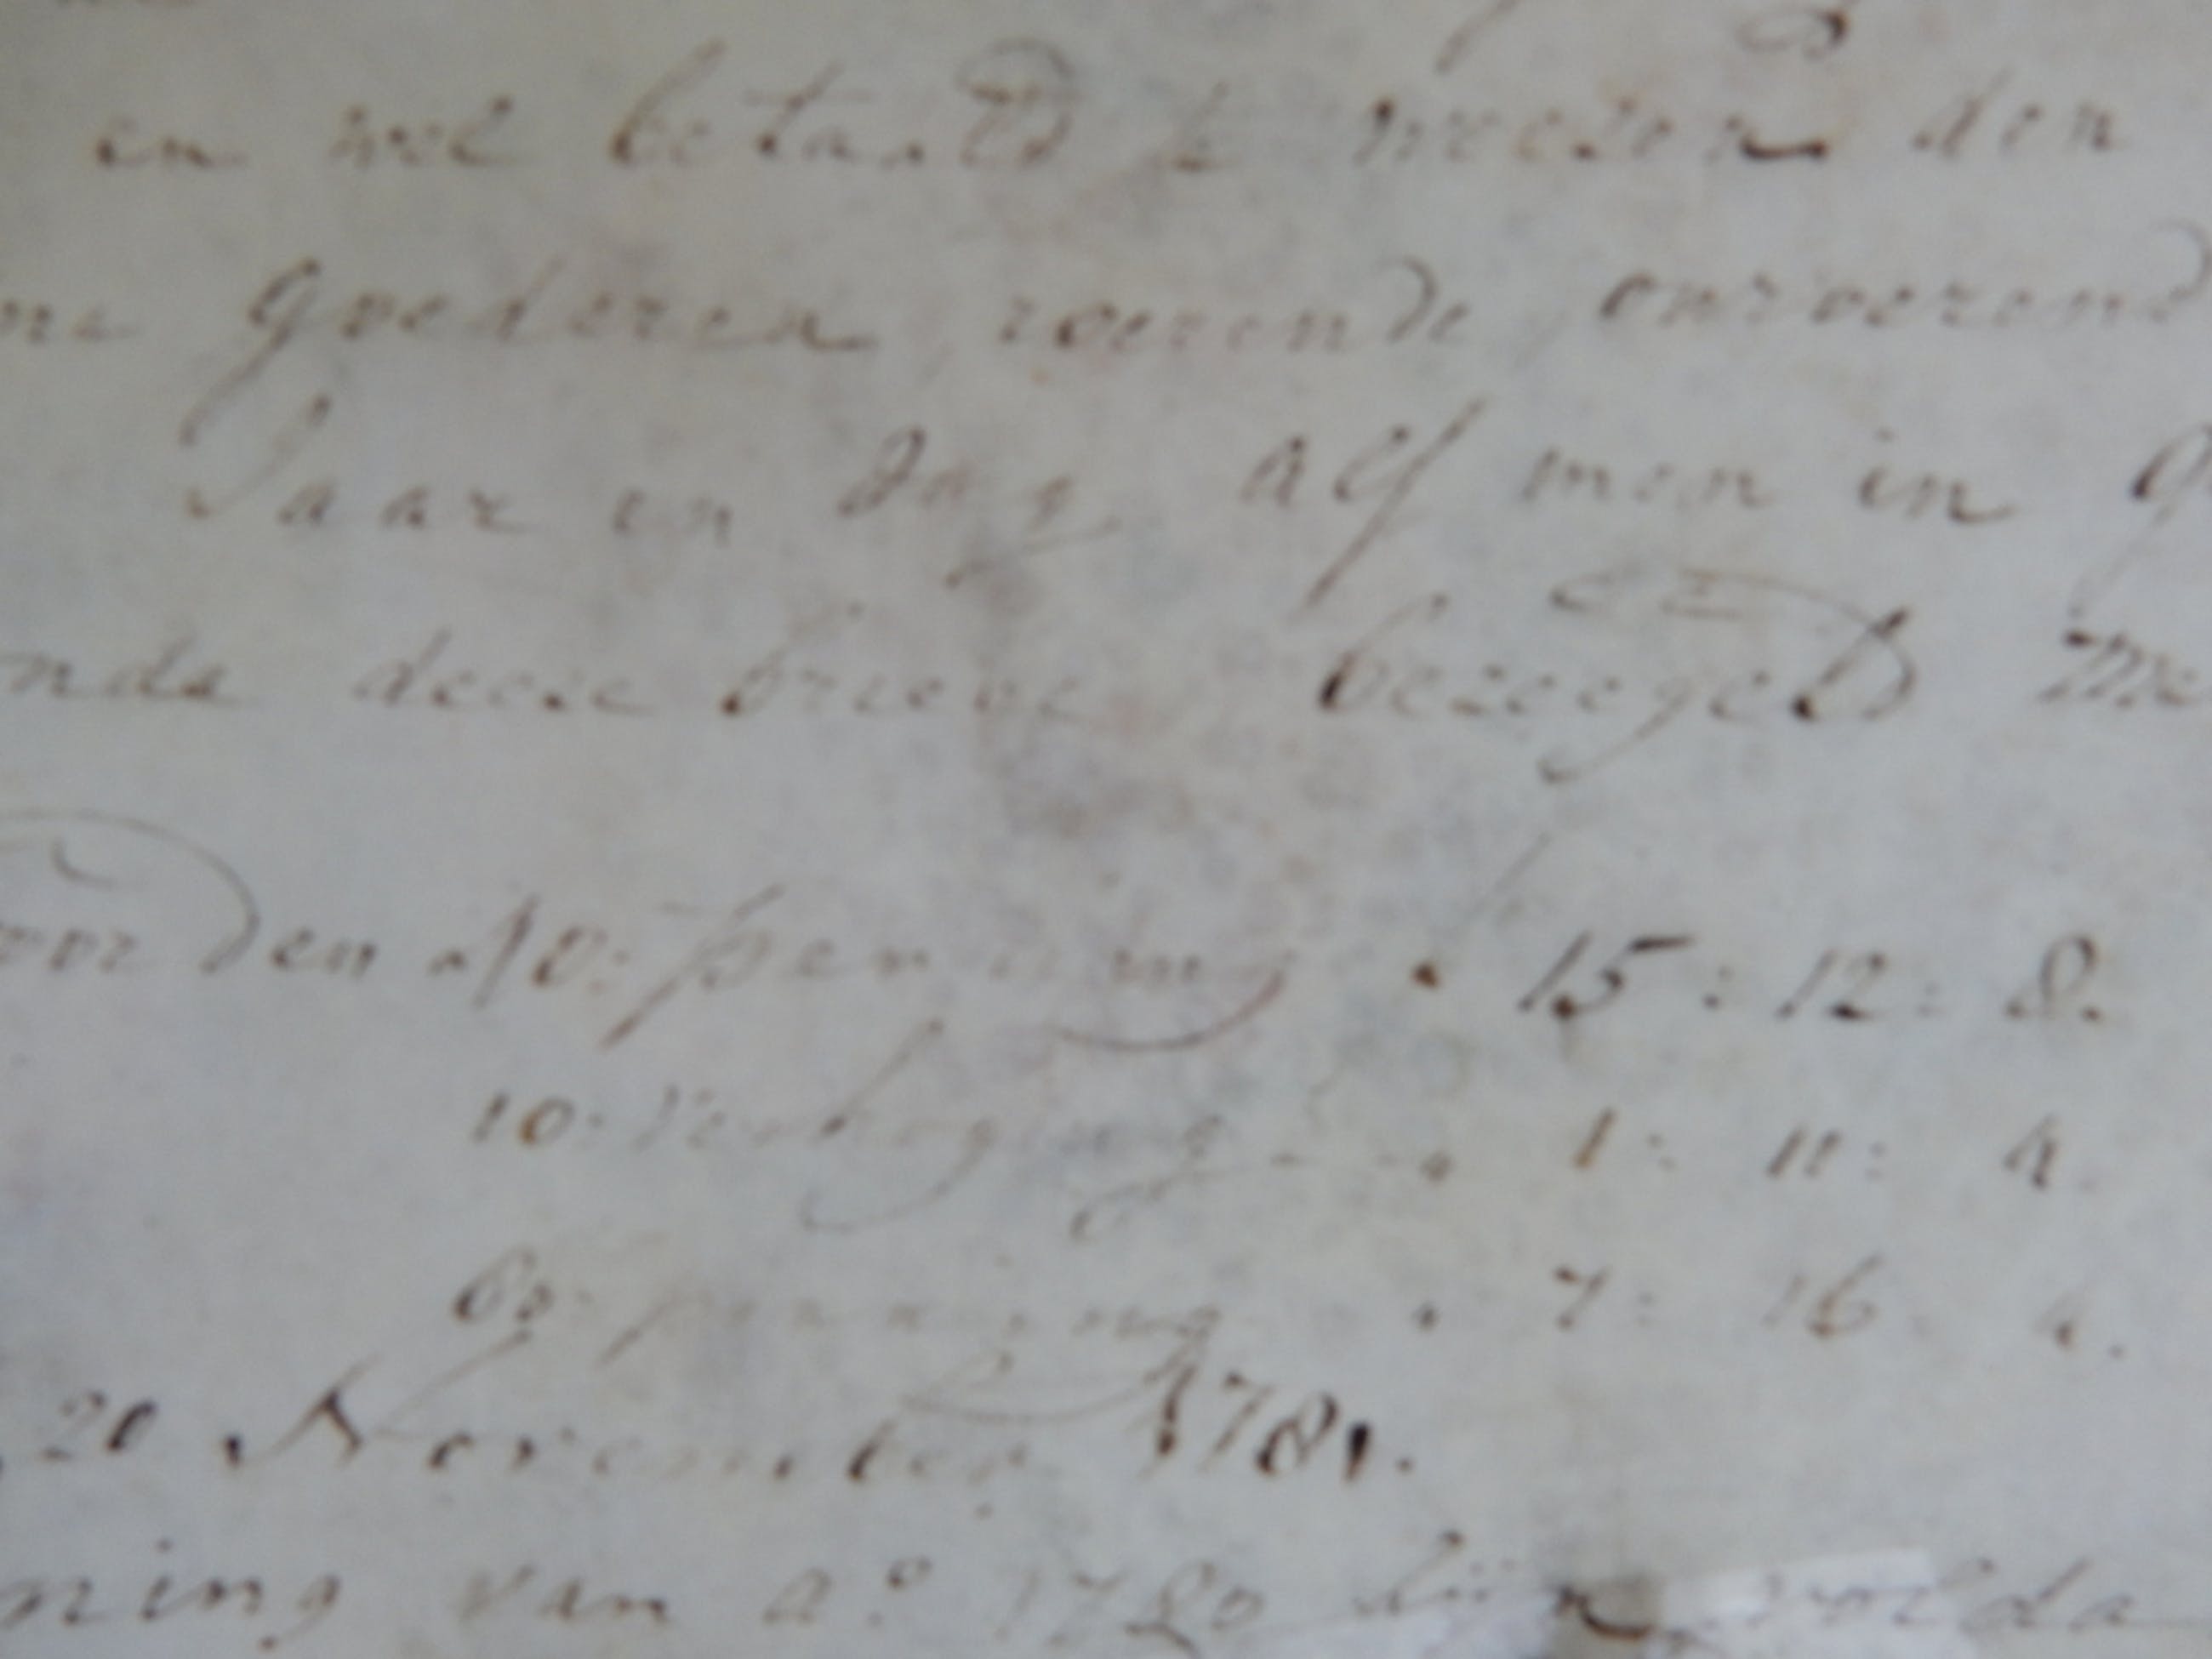 en wel betaald te weezen den
goederen, roerende, onroerend
Jaar en dag als men in
deeze brieve bezeegeld me
den 40: penning . 15 : 12 : 8.
10: Verhoging . 1 : 11 : 4.
80: penning . 7 : 16 : 4.
20 November 1781.
ning van a.º 1720 zijn volda